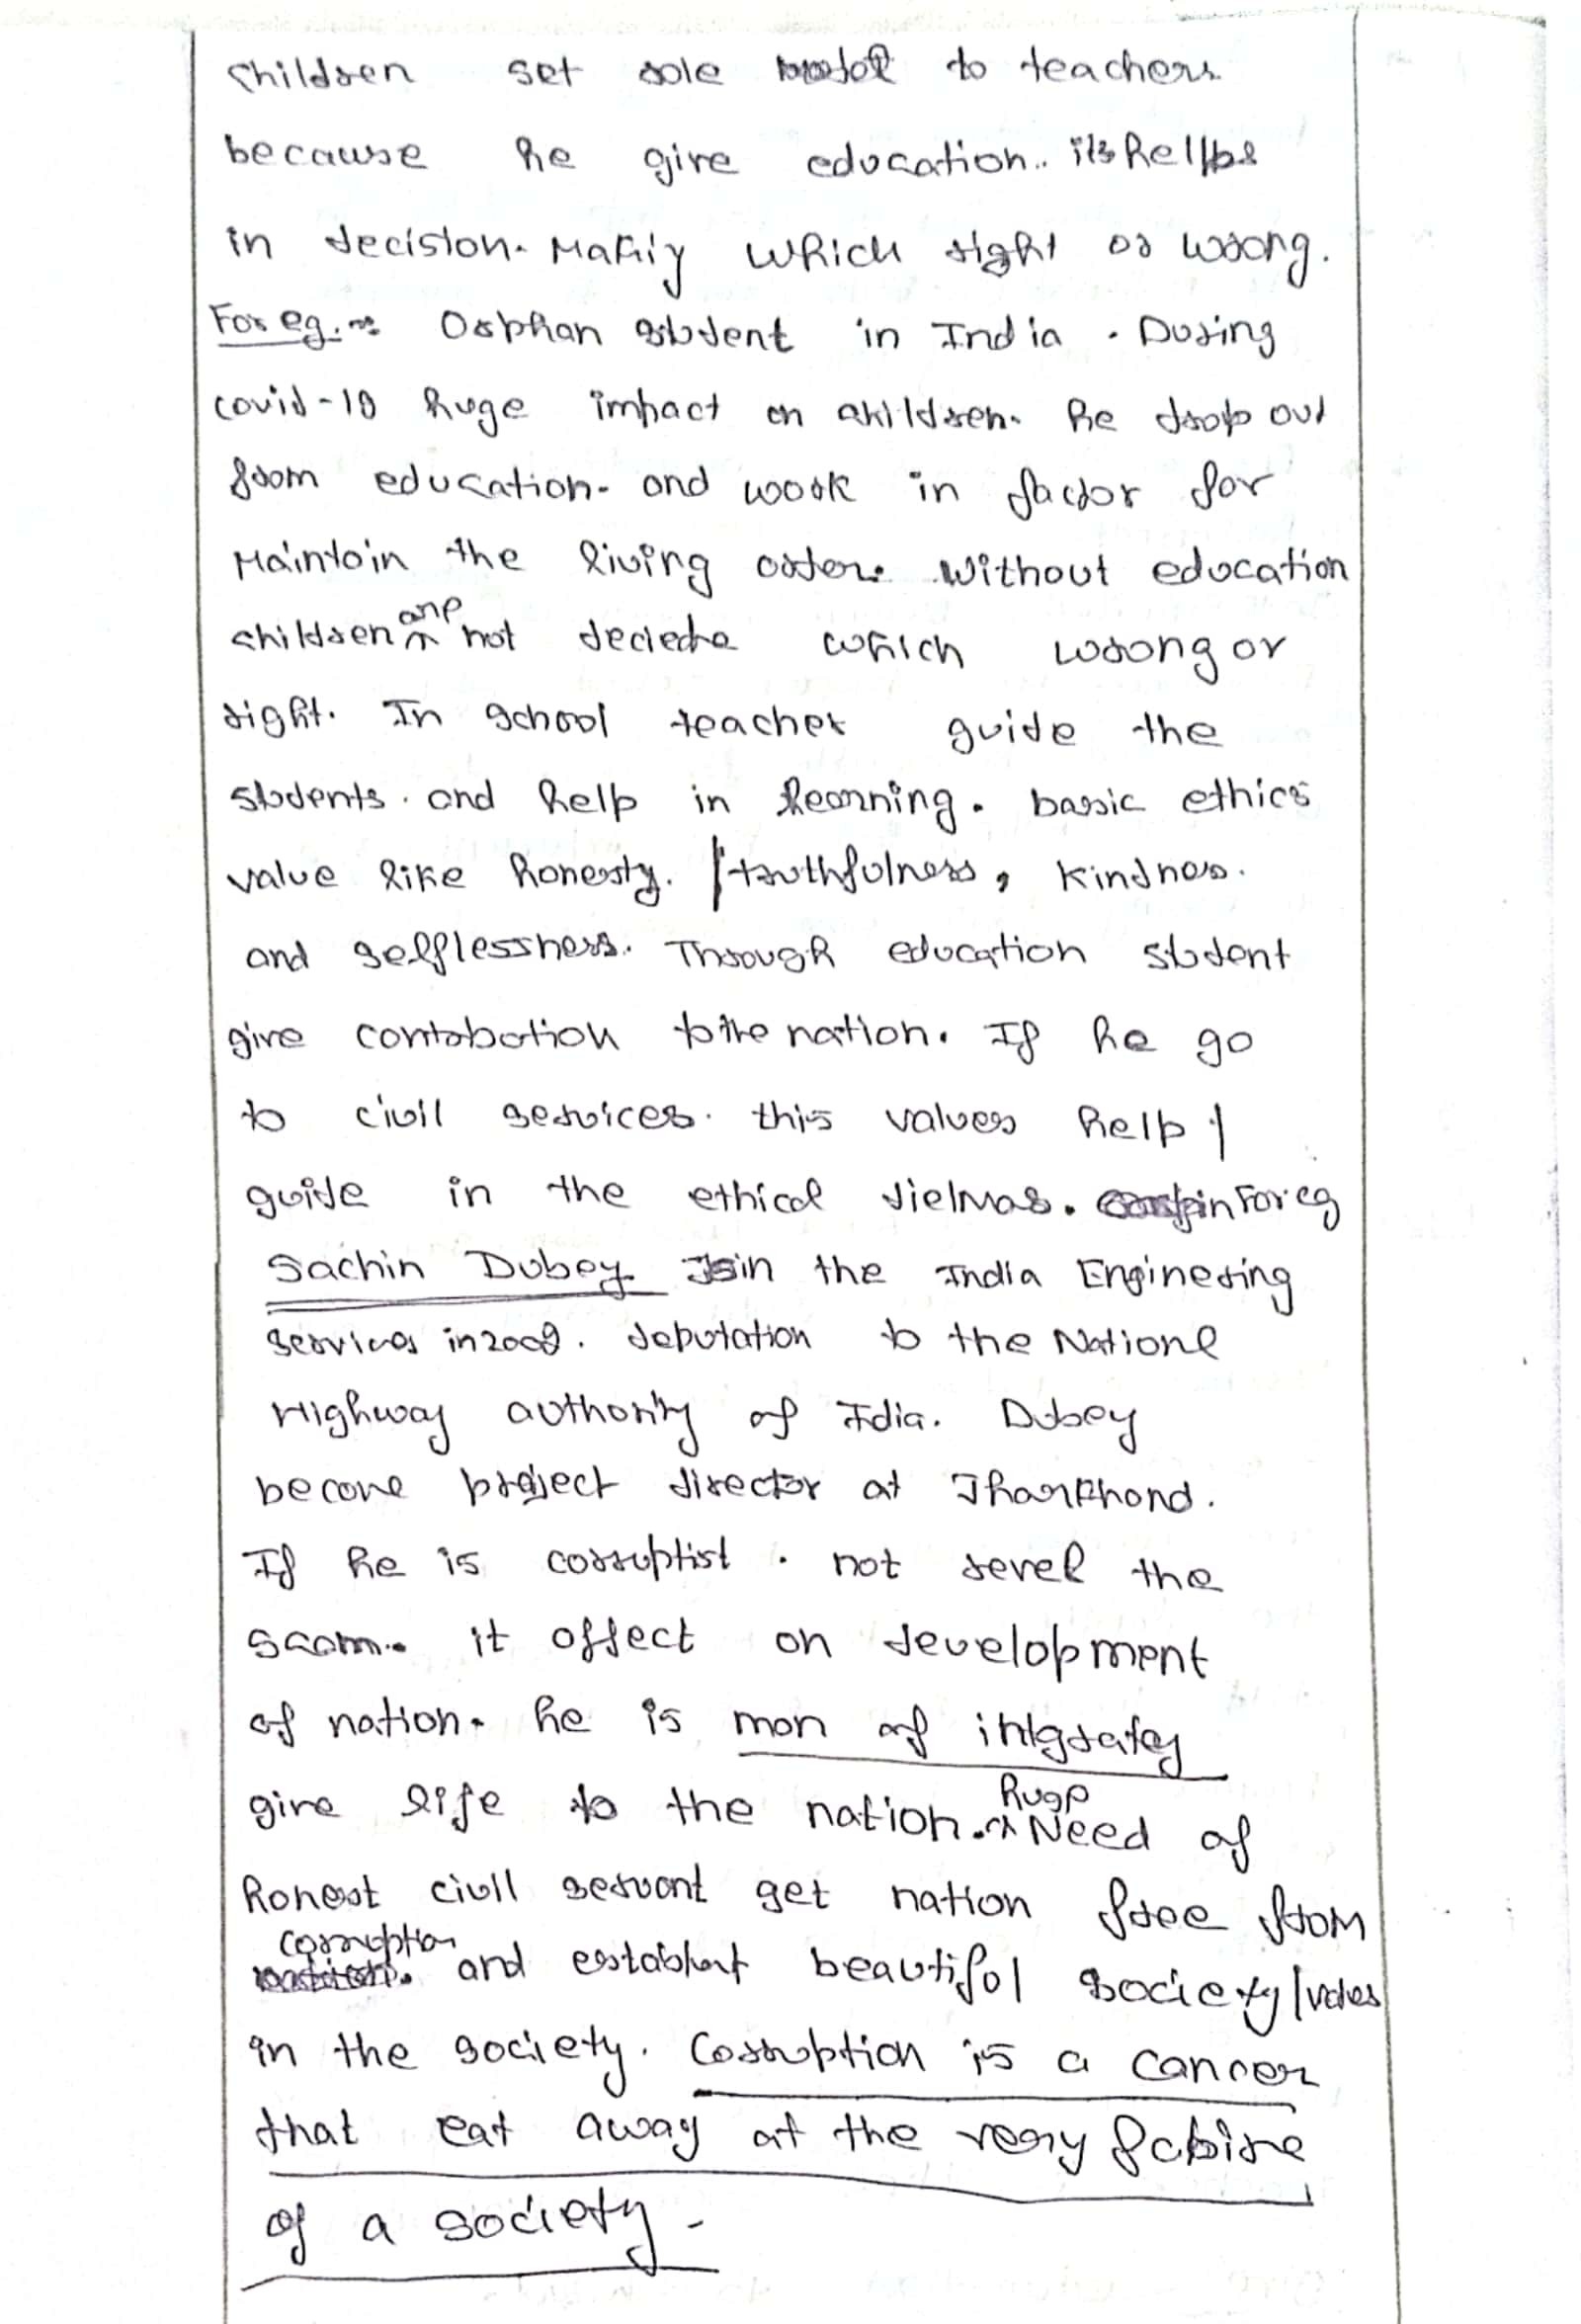 children set role model to teachers
because he give education.. its helps
in decision. Making which right or wrong.
For eg. :- Orphan student in India . During
covid-19 huge impact on children. he drop out
from education. and work in factor for
Maintain the living order. Without education
children are not deciede which wrong or
right. In school teacher guide the
students. and help in learning. bassic ethics
value like honesty. truthfulness, kindness.
and selflessness. Through education student
give contribution to the nation. If he go
to civil services. this values help /
guide in the ethical dielmas. For eg
Sachin Dubey Join the India Enginering
services in 2002. deputation to the Nationl
Highway authority of Idia. Dubey
become project director at Jharkhand.
If he is corruptist . not revel the
scam.. it affect on development
of nation. he is man of intgraty
give life to the nation. huge Need of
honest civil servant get nation free from
corruption and establish beautiful society / values
in the society. Corruption is a cancer
that eat away at the very fabire
of a society -